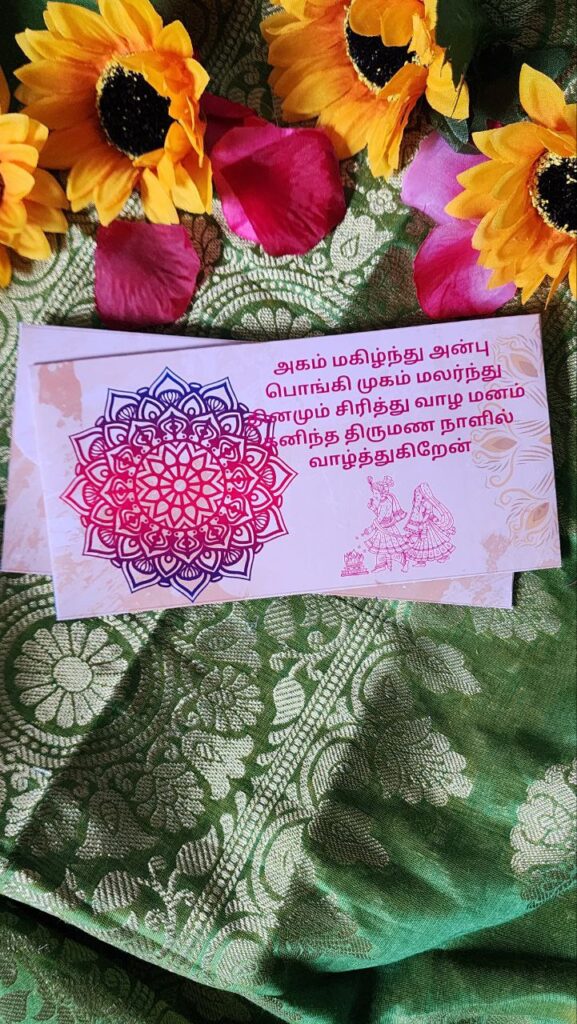 அகம் மகிழ்ந்து அன்பு
பொங்கி முகம் மலர்ந்து
தினமும் சிரித்து வாழ மனம்
கனிந்த திருமண நாளில்
வாழ்த்துகிறேன்